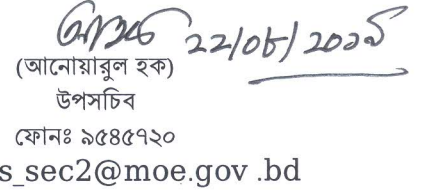 ২২/০৮/২০১৯
(আনোয়ারুল হক)
উপসচিব
ফোনঃ ৯৫৪৫৭২০
s_sec2@moe.gov .bd